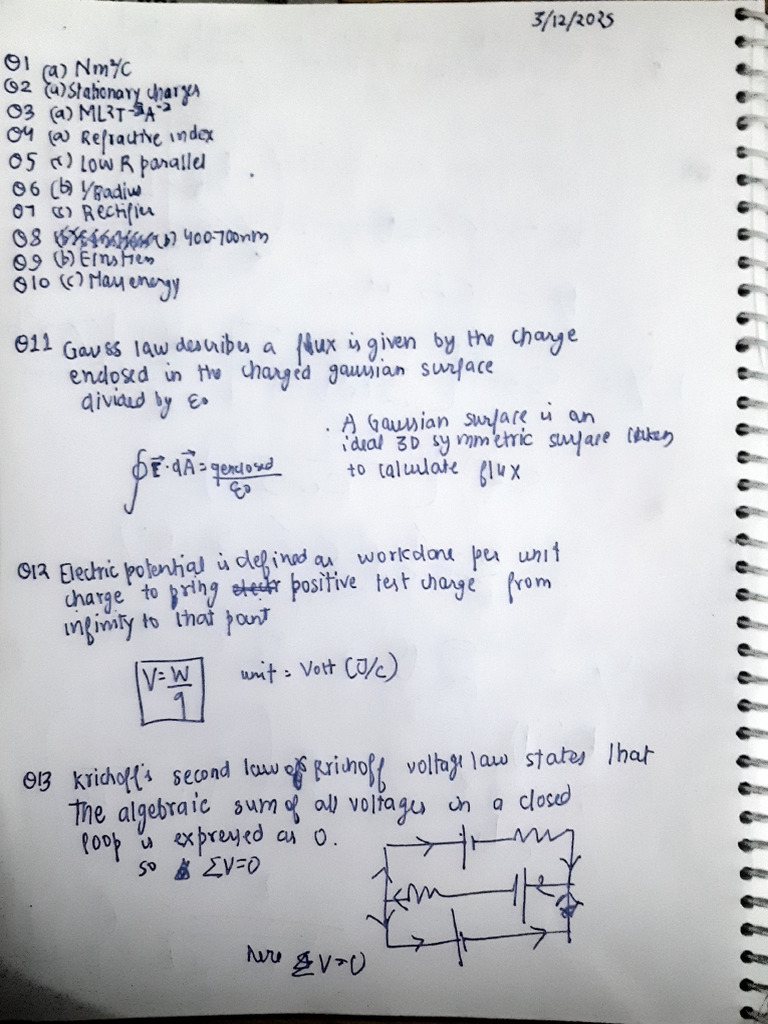 3/12/2025
Q1 (a) Nm²/C
Q2 (a) Stationary charges
Q3 (a) ML²T⁻³A⁻²
Q4 (a) Refractive index
Q5 (c) Low R parallel
Q6 (b) 1/Radius
Q7 (c) Rectifier
Q8 (b) 400-700nm
Q9 (b) Einstien
Q10 (c) Mass energy
Q11 Gauss law describes a flux is given by the charge
enclosed in the charged gaussian surface
divided by ε₀
. A Gaussian surface is an
ideal 3D symmetric surface taken
to calculate flux
∮E⃗·dA⃗ = qenclosed/ε₀
Q12 Electric potential is defined as workdone per unit
charge to bring positive test charge from
infinity to that point
V = W/q
unit = Volt (J/C)
Q13 Krichoff's second law or Krichoff voltage law states that
the algebraic sum of all voltages in a closed
loop is expressed as 0.
so ΣV=0
here ΣV=0